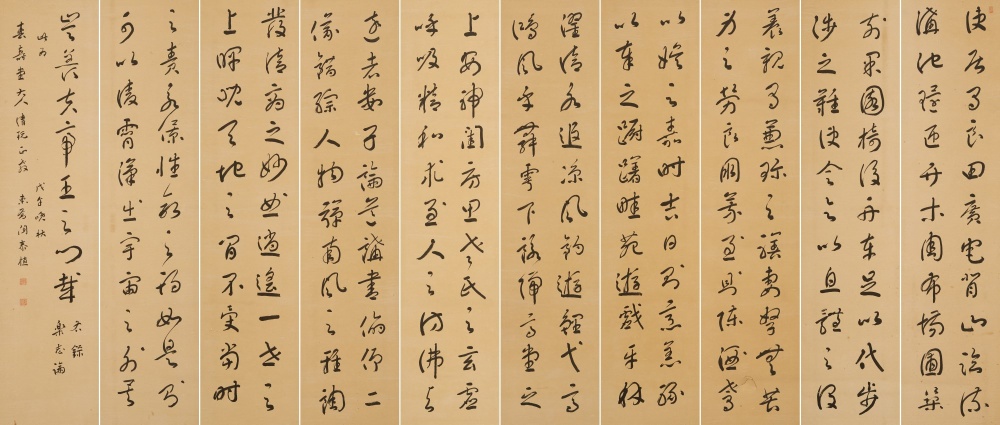 使居有良田廣宅背山臨流
溝池環匝竹木周布場圃築
前果園樹後舟車足以代步
涉之難使令足以息體之役
養親有兼珍之膳妻孥無苦
身之勞良朋萃止則陳酒肴
以娛之嘉時吉日則烹羔豚
以奉之躕躇畦苑遊戲平林
濯清水追涼風釣遊鯉弋高
鴻風乎舞雩下詠歸高堂之
上安神閨房思老氏之玄虛
呼吸精和求至人之彷彿與
達者數子論道講書俯仰二
儀錯綜人物彈南風之雅調
發清商之妙曲逍遙一世之
上睥睨天地之間不受當時
之責永保性命之期如是則
可以凌霄漢出宇宙之外矣
豈羨夫帝王之門哉
右錄
樂志論
戊午晚秋